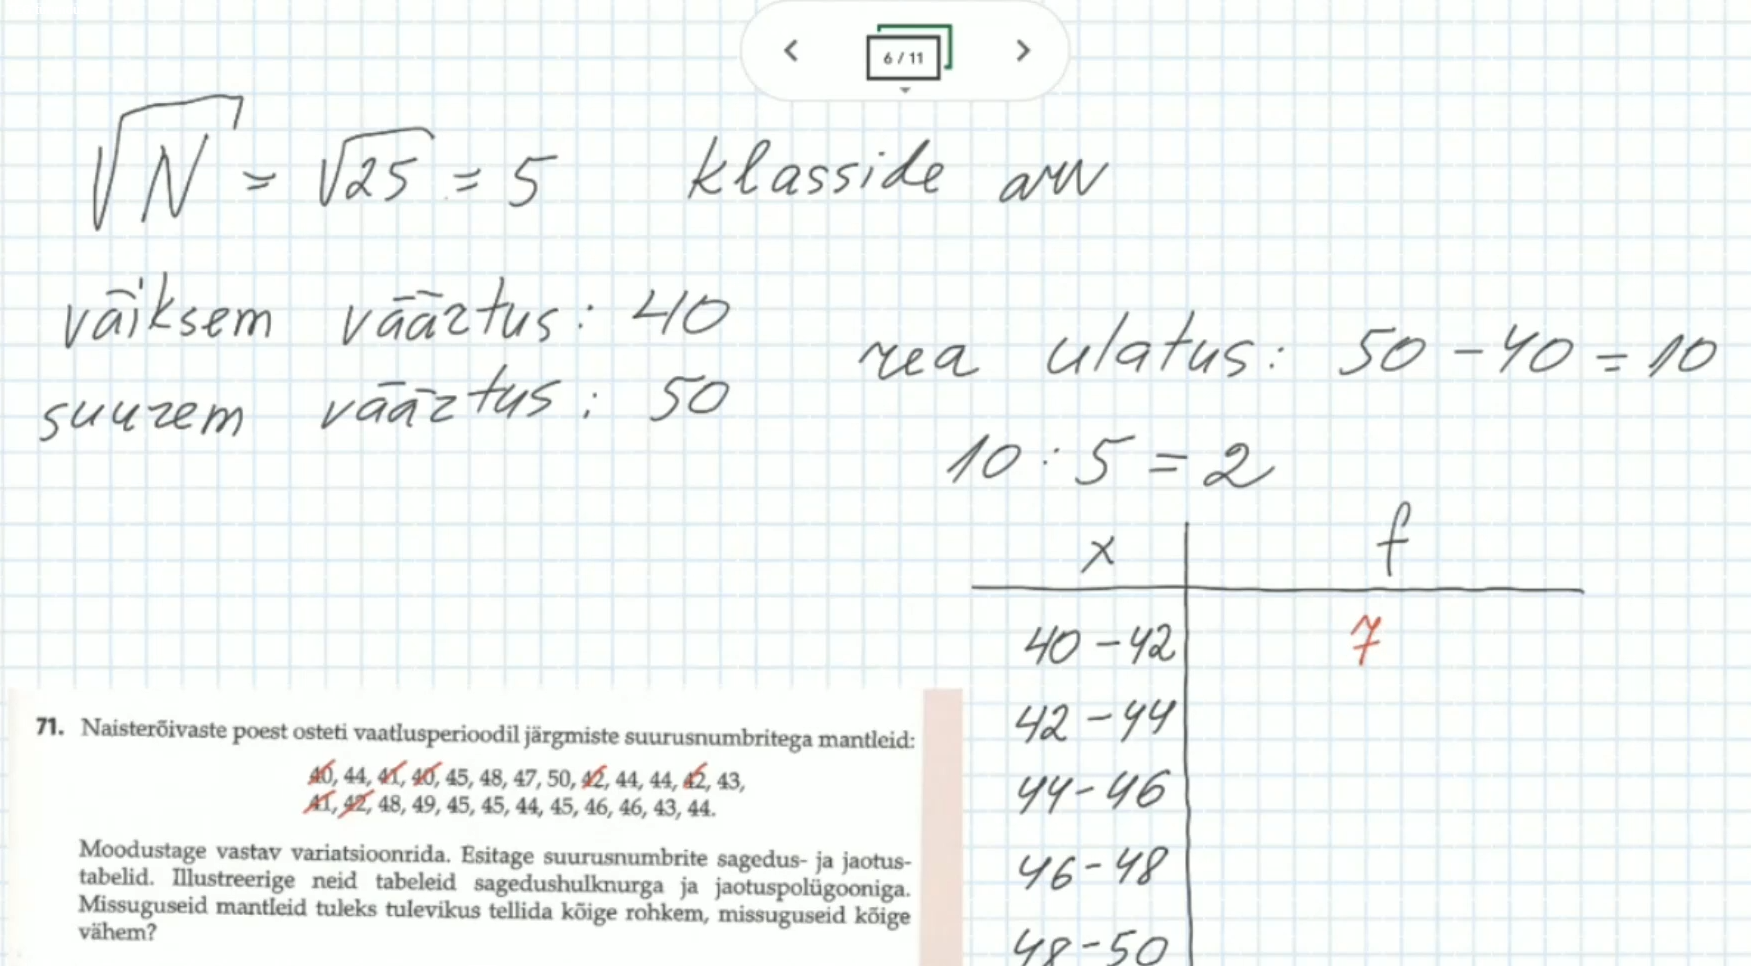 6 / 11
√N = √25 = 5 klasside arv
väiksem väärtus: 40
suurem väärtus: 50
rea ulatus: 50 - 40 = 10
10 : 5 = 2
x f
40 - 42 7
42 - 44
44 - 46
46 - 48
48 - 50
71. Naisterõivaste poest osteti vaatlusperioodil järgmiste suurusnumbritega mantleid:
40, 44, 41, 40, 45, 48, 47, 50, 42, 44, 44, 42, 43,
41, 42, 48, 49, 45, 45, 44, 45, 46, 46, 43, 44.
Moodustage vastav variatsioonrida. Esitage suurusnumbrite sagedus- ja jaotus-
tabelid. Illustreerige neid tabeleid sagedushulknurga ja jaotuspolügooniga.
Missuguseid mantleid tuleks tulevikus tellida kõige rohkem, missuguseid kõige
vähem?